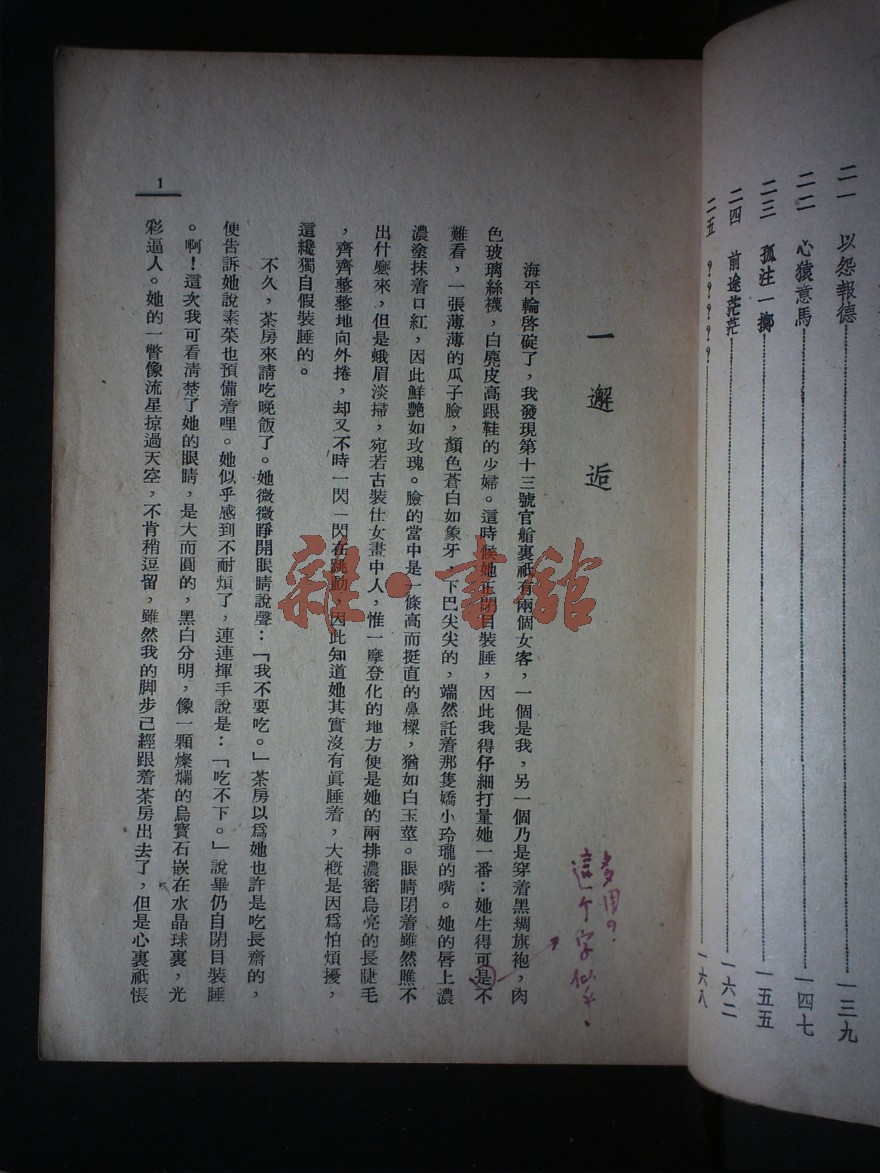 二一 以怨報德 一三九
二二 心猿意馬 一四七
二三 孤注一擲 一五五
二四 前途茫茫 一六二
二五 ？？？？？ 一六八
一 邂逅
海平輪啓碇了，我發現第十三號官艙裏祇有兩個女客，一個是我，另一個乃是穿着黑綢旗袍，肉
色玻璃絲襪，白麂皮高跟鞋的少婦。這時候她正閉目裝睡，因此我得仔細打量她一番：她生得可是不
難看，一張薄薄的瓜子臉，顏色蒼白如象牙，下巴尖尖的，端然託着那隻嬌小玲瓏的嘴。她的唇上濃
濃塗抹着口紅，因此鮮艷如玫瑰。臉的當中是一條高而挺直的鼻樑，猶如白玉莖。眼睛閉着雖然瞧不
出什麼來，但是蛾眉淡掃，宛若古裝仕女畫中人，惟一摩登化的地方便是她的兩排濃密烏亮的長睫毛
，齊齊整整地向外捲，却又不時一閃一閃在跳動，因此知道她其實沒有眞睡着，大槪是因爲怕煩擾，
這纔獨自假裝睡的。
不久，茶房來請吃晚飯了。她微微睜開眼睛說聲：「我不要吃。」茶房以爲她也許是吃長齋的，
便告訴她說素菜也預備着哩。她似乎感到不耐煩了，連連揮手說是：「吃不下。」說畢仍自閉目裝睡
。啊！這次我可看清楚了她的眼睛，是大而圓的，黑白分明，像一顆燦爛的烏寶石嵌在水晶球裏，光
彩逼人。她的一瞥像流星掠過天空，不肯稍逗留，雖然我的脚步已經跟着茶房出去了，但是心裏祇悵
1
這个字似乎、
多用了
雜·書館